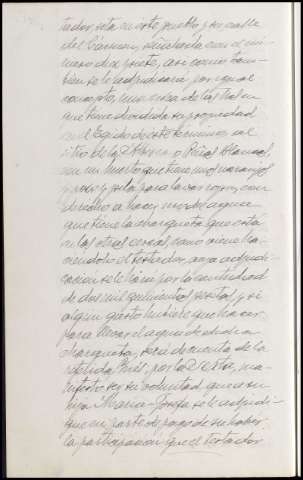 tador, sita en este pueblo y su calle
del Cármen, señalada con el nú-
mero diez y siete, así como tam-
bien se le adjudicará por igual
concepto, una de las tres en
que tiene dividida su propiedad
en el Egido de este termino, al
sitio de la ó Peñas Blancas,
con un huerto que tiene unos naranjos
y y pila para lavar ropa, con
derecho a hacer uso del agua
que tiene la charqueta que está
en las otras casas, como viene ha-
ciendolo el testador, cuya adjudi-
cación se le hará por la cantidad
de dos mil quinientas pesetas, y si
algun gasto hubiere que hacer
para llevar el agua desde la
charqueta, será de cuenta de la
referida Inés, por la ma-
nifestó ser su voluntad, que a su
hija Maria-Josefa se le adjudi-
que en parte de pago de su haber,
la participacion que el testador